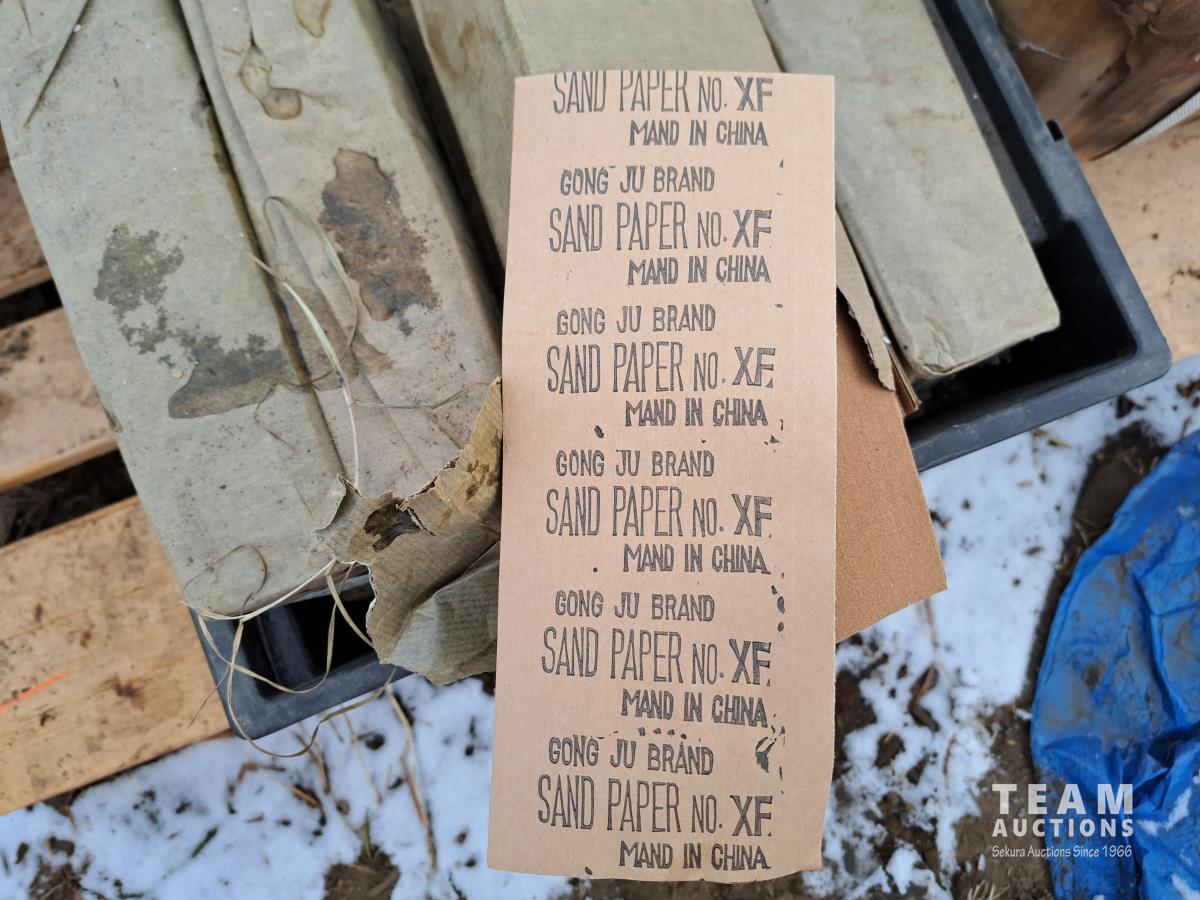 SAND PAPER NO. XF
MAND IN CHINA
GONG JU BRAND
SAND PAPER NO. XF
MAND IN CHINA
GONG JU BRAND
SAND PAPER NO. XF
MAND IN CHINA
GONG JU BRAND
SAND PAPER NO. XF
MAND IN CHINA
GONG JU BRAND
SAND PAPER NO. XF
MAND IN CHINA
GONG JU BRAND
SAND PAPER NO. XF
MAND IN CHINA
TEAM
AUCTIONS
Sekura Auctions Since 1966